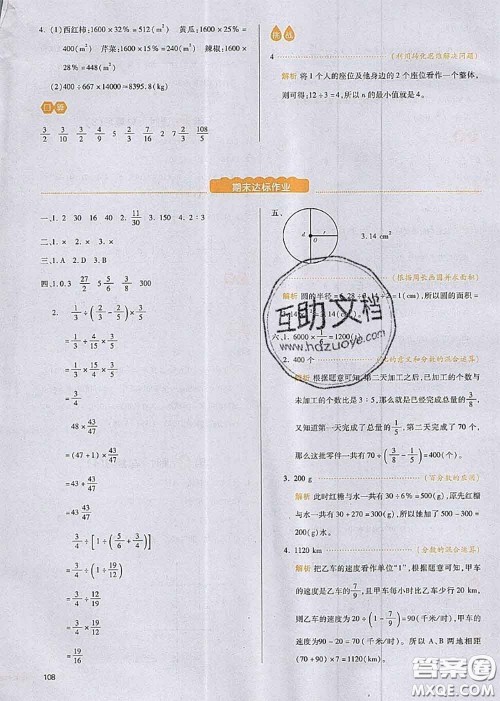 4. (1)西红柿:1600×32%=512(m²) 黄瓜:1600×25%=
400(m²) 芹菜:1600×15%=240(m²) 辣椒:1600×
28%=448(m²)
(2)2400÷667×14000≈8395.8(kg)
口算
3/2 3/10 9/2 3/4 3/2 2/3 2 108/5
挑战
4 (利用转化思维解决问题)
解析 将1个人的座位及他身边的2个座位看作一个整体,
则可得:12÷3=4,所以n的最小值就是4。
期末达标作业
一、1. 2 30 16 40 2. 11/30 3. 2∶3
二、1. × 2. × 3. ×
三、1. A 2. D 3. B
四、1. 0.3 27/2 5/6 3/5 150
2. 1/3÷(2/3-2/5)×3/5
=1/3÷4/15×3/5
=1/3×15/4×3/5
=3/4
48×43/47
=(47+1)×43/47
=47×43/47+43/47
=43 43/47
3/4÷[1÷(5/6+3/4)]
=3/4÷[1÷19/12]
=3/4÷12/19
=19/16
五、
d
O
r
3.14 cm²
(根据周长画圆并求面积)
解析 圆的半径=6.28÷
÷2=1(cm),所以圆的面积=
六、1. 6000×1/5=1200(
2. 400个 意义和分数的混合运算)
解析 根据题意可知,第二天加工之后,已加工的个数与
未加工的个数比是3∶5,那么就是已经完成总量的3/8,
又知道第一天完成了总量的1/5,第二天完成了70个,
那么这批零件一共有70÷(3/8-1/5)=400(个)。
3. 200 g (百分数的应用)
解析 此时红糖与水一共有30÷6%=500(g),原先红糖
与水一共有30+270=300(g),所以她加了500-300=
200(g)水。
4. 1120 km (分数的混合运算)
解析 把乙车的速度看作单位“1”,根据题意可知,甲车
的速度是乙车的7/9,且甲车每小时比乙车少行20 km,
则乙车的速度为20÷(1-7/9)=90(千米/时),甲车的
速度为90-20=70(千米/时)。所以A、B两地相距
(70+90)×7=1120(km)。
108
互助文档
www.hdzuoye.com
答案圈
MXQE.COM